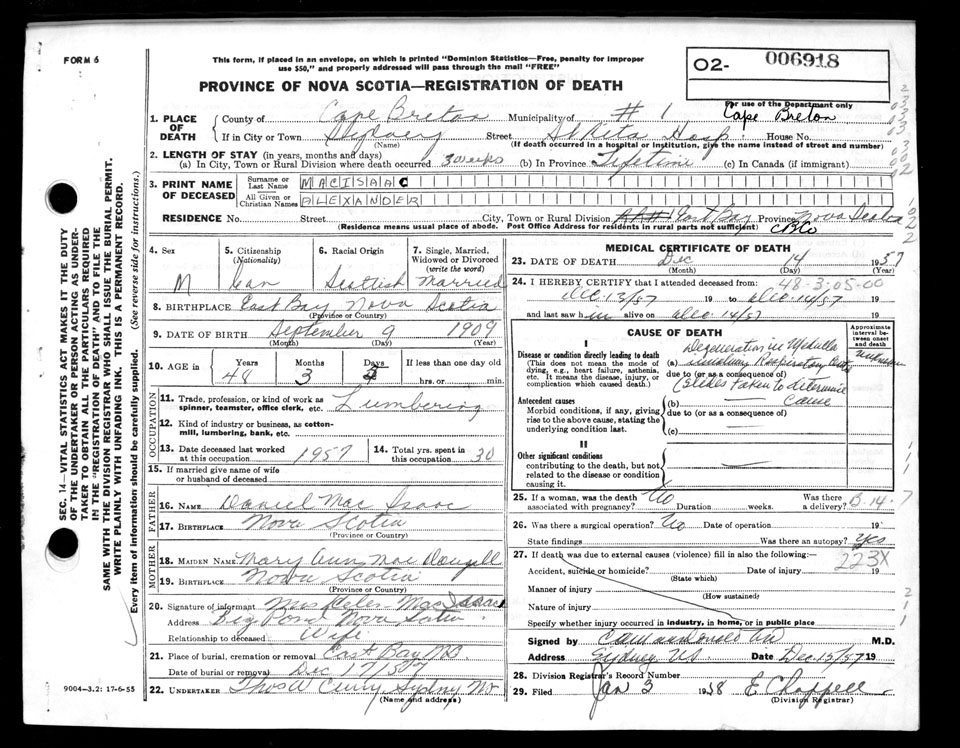 FORM 6
This form, if placed in an envelope, on which is printed "Dominion Statistics—Free, penalty for improper
use $50," and properly addressed will pass through the mail "FREE"
O2- 006918
PROVINCE OF NOVA SCOTIA—REGISTRATION OF DEATH
For use of the Department only
Cape Breton
1. PLACE OF DEATH
County of Cape Breton Municipality of # 1
If in City or Town Sydney Street St Rita Hosp House No.
(Name) (If death occurred in a hospital or institution, give the name instead of street and number)
2. LENGTH OF STAY (in years, months and days)
(a) In City, Town or Rural Division where death occurred 3 weeks (b) In Province Lifetime (c) In Canada (if immigrant)
3. PRINT NAME OF DECEASED
Surname or Last Name MACISAAC
All Given or Christian Names ALEXANDER
RESIDENCE No. Street City, Town or Rural Division East Bay Province Nova Scotia
(Residence means usual place of abode. Post Office Address for residents in rural parts not sufficient) CBCo
4. Sex M
5. Citizenship (Nationality) Can
6. Racial Origin Scottish
7. Single, Married, Widowed or Divorced (write the word) Married
8. BIRTHPLACE East Bay Nova Scotia
(Province or Country)
9. DATE OF BIRTH September 9 1909
(Month) (Day) (Year)
10. AGE in Years 48 Months 3 Days If less than one day old hrs. or min.
OCCUPATION
11. Trade, profession, or kind of work as spinner, teamster, office clerk, etc. Lumbering
12. Kind of industry or business, as cotton-mill, lumbering, bank, etc.
13. Date deceased last worked at this occupation 1957
14. Total yrs. spent in this occupation 30
15. If married give name of wife or husband of deceased
FATHER
16. NAME Daniel Mac Isaac
17. BIRTHPLACE Nova Scotia
(Province or Country)
MOTHER
18. MAIDEN NAME Mary Ann Mac Dougall
19. BIRTHPLACE Nova Scotia
(Province or Country)
20. Signature of informant Mrs Helen MacIsaac
Address Big Pond Nova Scotia
Relationship to deceased Wife
21. Place of burial, cremation or removal East Bay NS
Date of burial or removal Dec 17/57
22. UNDERTAKER Thos W Curry Sydney NS
(Name and address)
MEDICAL CERTIFICATE OF DEATH
23. DATE OF DEATH Dec 14 1957
(Month) (Day) (Year)
24. I HEREBY CERTIFY that I attended deceased from: 48-3:05-00
Dec 13/57 19 to Dec 14/57 19
and last saw him alive on Dec 14/57 19
CAUSE OF DEATH
Approximate interval between onset and death
I
Disease or condition directly leading to death
(This does not mean the mode of dying, e.g., heart failure, asthenia, etc. It means the disease, injury, or complication which caused death.)
Degeneration in Medulla
(a) involving Respiratory Centre unknown
due to (or as a consequence of)
(slides taken to determine
cause
Antecedent causes
Morbid conditions, if any, giving rise to the above cause, stating the underlying condition last.
(b) —
due to (or as a consequence of)
(c) —
II
Other significant conditions
contributing to the death, but not related to the disease or condition causing it.
25. If a woman, was the death associated with pregnancy? No Duration weeks. Was there a delivery? B-14-7
26. Was there a surgical operation? No Date of operation 19
State findings Was there an autopsy? Yes
27. If death was due to external causes (violence) fill in also the following:— 223X
Accident, suicide or homicide? Date of injury 19
(State which)
Manner of injury
(How sustained)
Nature of injury
Specify whether injury occurred in industry, in home, or in public place
Signed by M.D.
Address Sydney NS Date Dec. 15/57 19
28. Division Registrar's Record Number
29. Filed Jan 3 1958 E Chappell
(Division Registrar)
SEC. 14—VITAL STATISTICS ACT MAKES IT THE DUTY
OF THE UNDERTAKER OR PERSON ACTING AS UNDER-
TAKER TO OBTAIN ALL THE PARTICULARS REQUIRED
IN THE "REGISTRATION OF DEATH" AND TO FILE THE
SAME WITH THE DIVISION REGISTRAR WHO SHALL ISSUE THE BURIAL PERMIT.
WRITE PLAINLY WITH UNFADING INK. THIS IS A PERMANENT RECORD.
Every item of information should be carefully supplied. (See reverse side for instructions.)
9004—3.2: 17-6-55